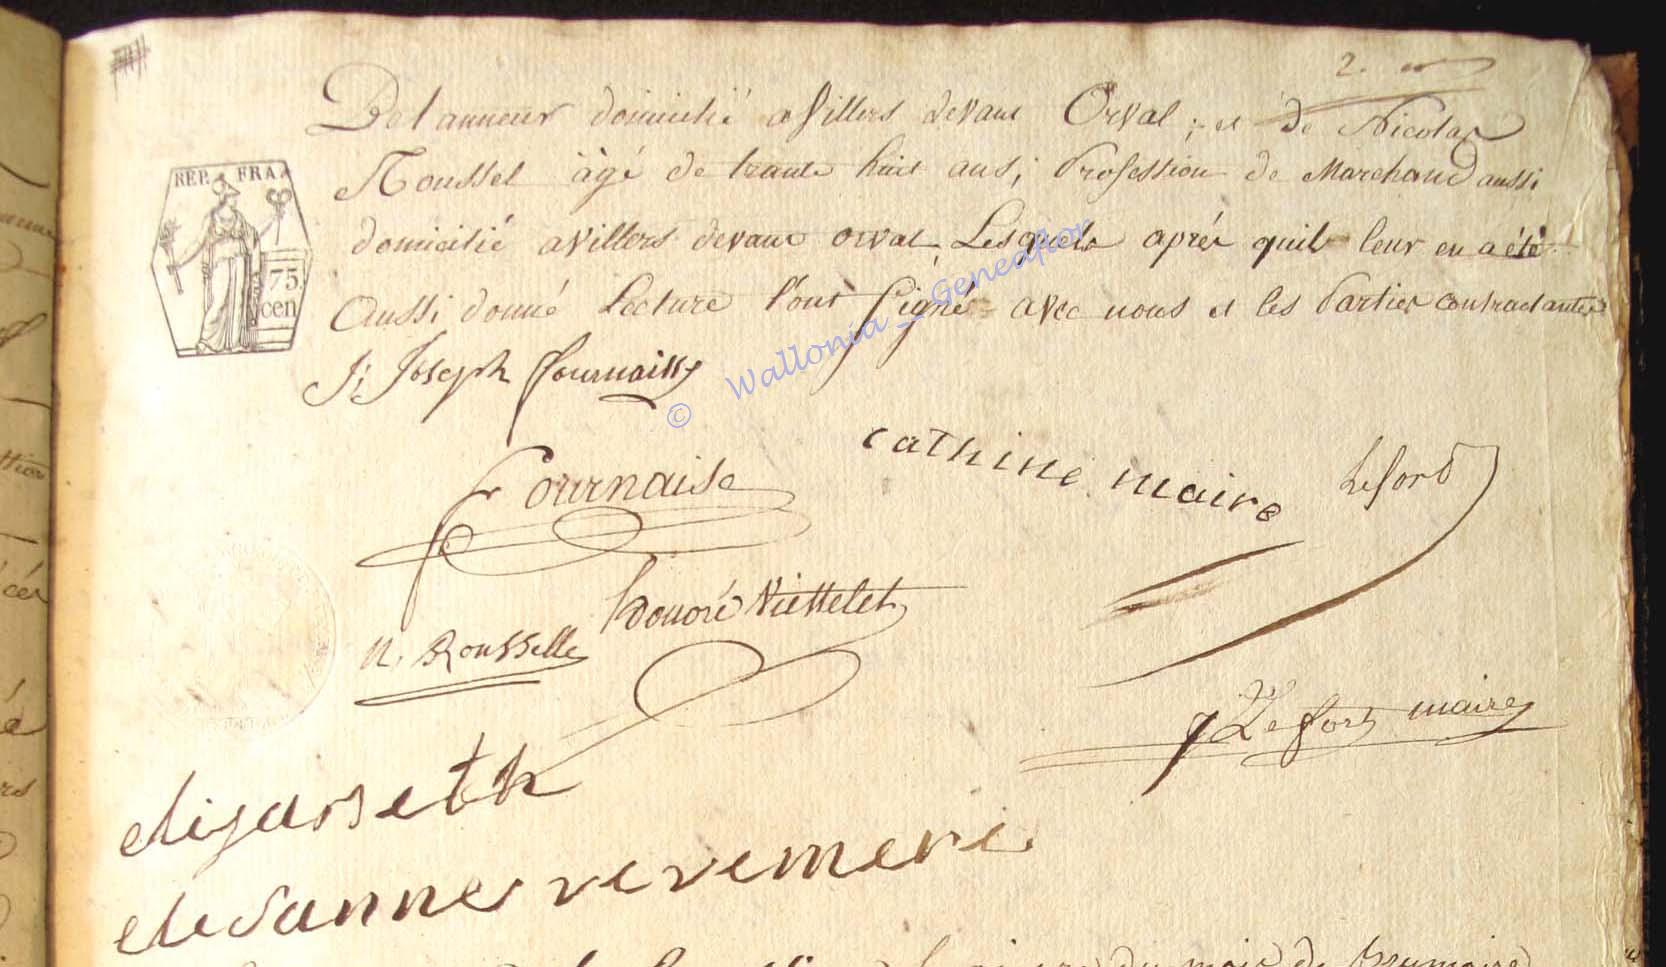 2.
De tanneur domicilié a Villers devant Orval ; et de Nicolas
Roussel âgé de trante huit ans ; Profession de Marchand aussi
domicilié a Villers devant orval, Lesquels aprés quil leur en a été
Aussi donné Lecture l'ont Signé avec nous et les Parties contractantes
REP. FRA
75.
cen
J: Joseph fournaisse
© Wallonia _ Geneaflor
Fournaise
cathine maire
Lefort
honoré Viettelet
N. Rousselle
J Lefort maire
elisabeth